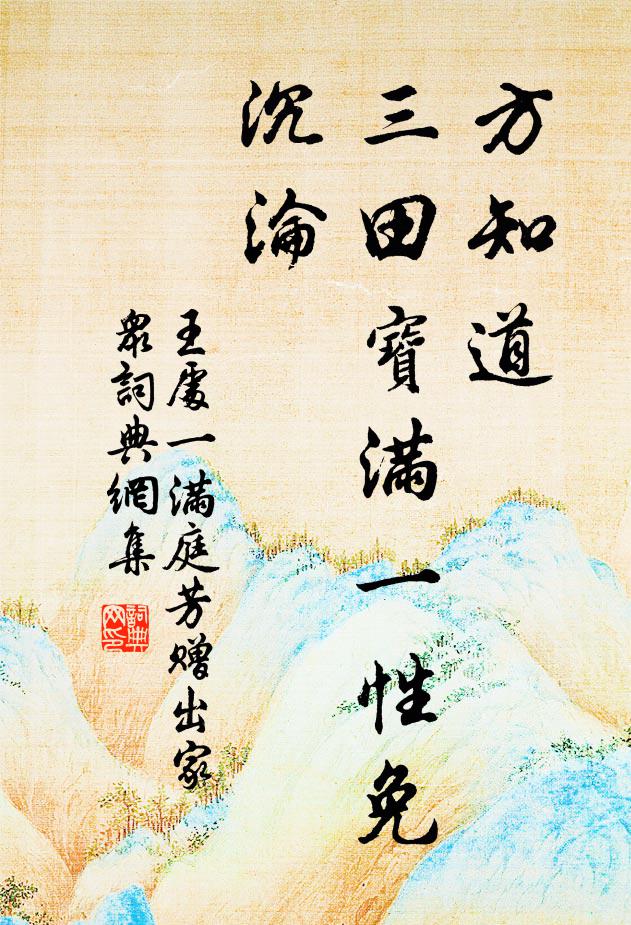 方知道
三田寶滿一性免
沉淪
王處一滿庭芳贈出家
眾詞典網集
詞典
网印